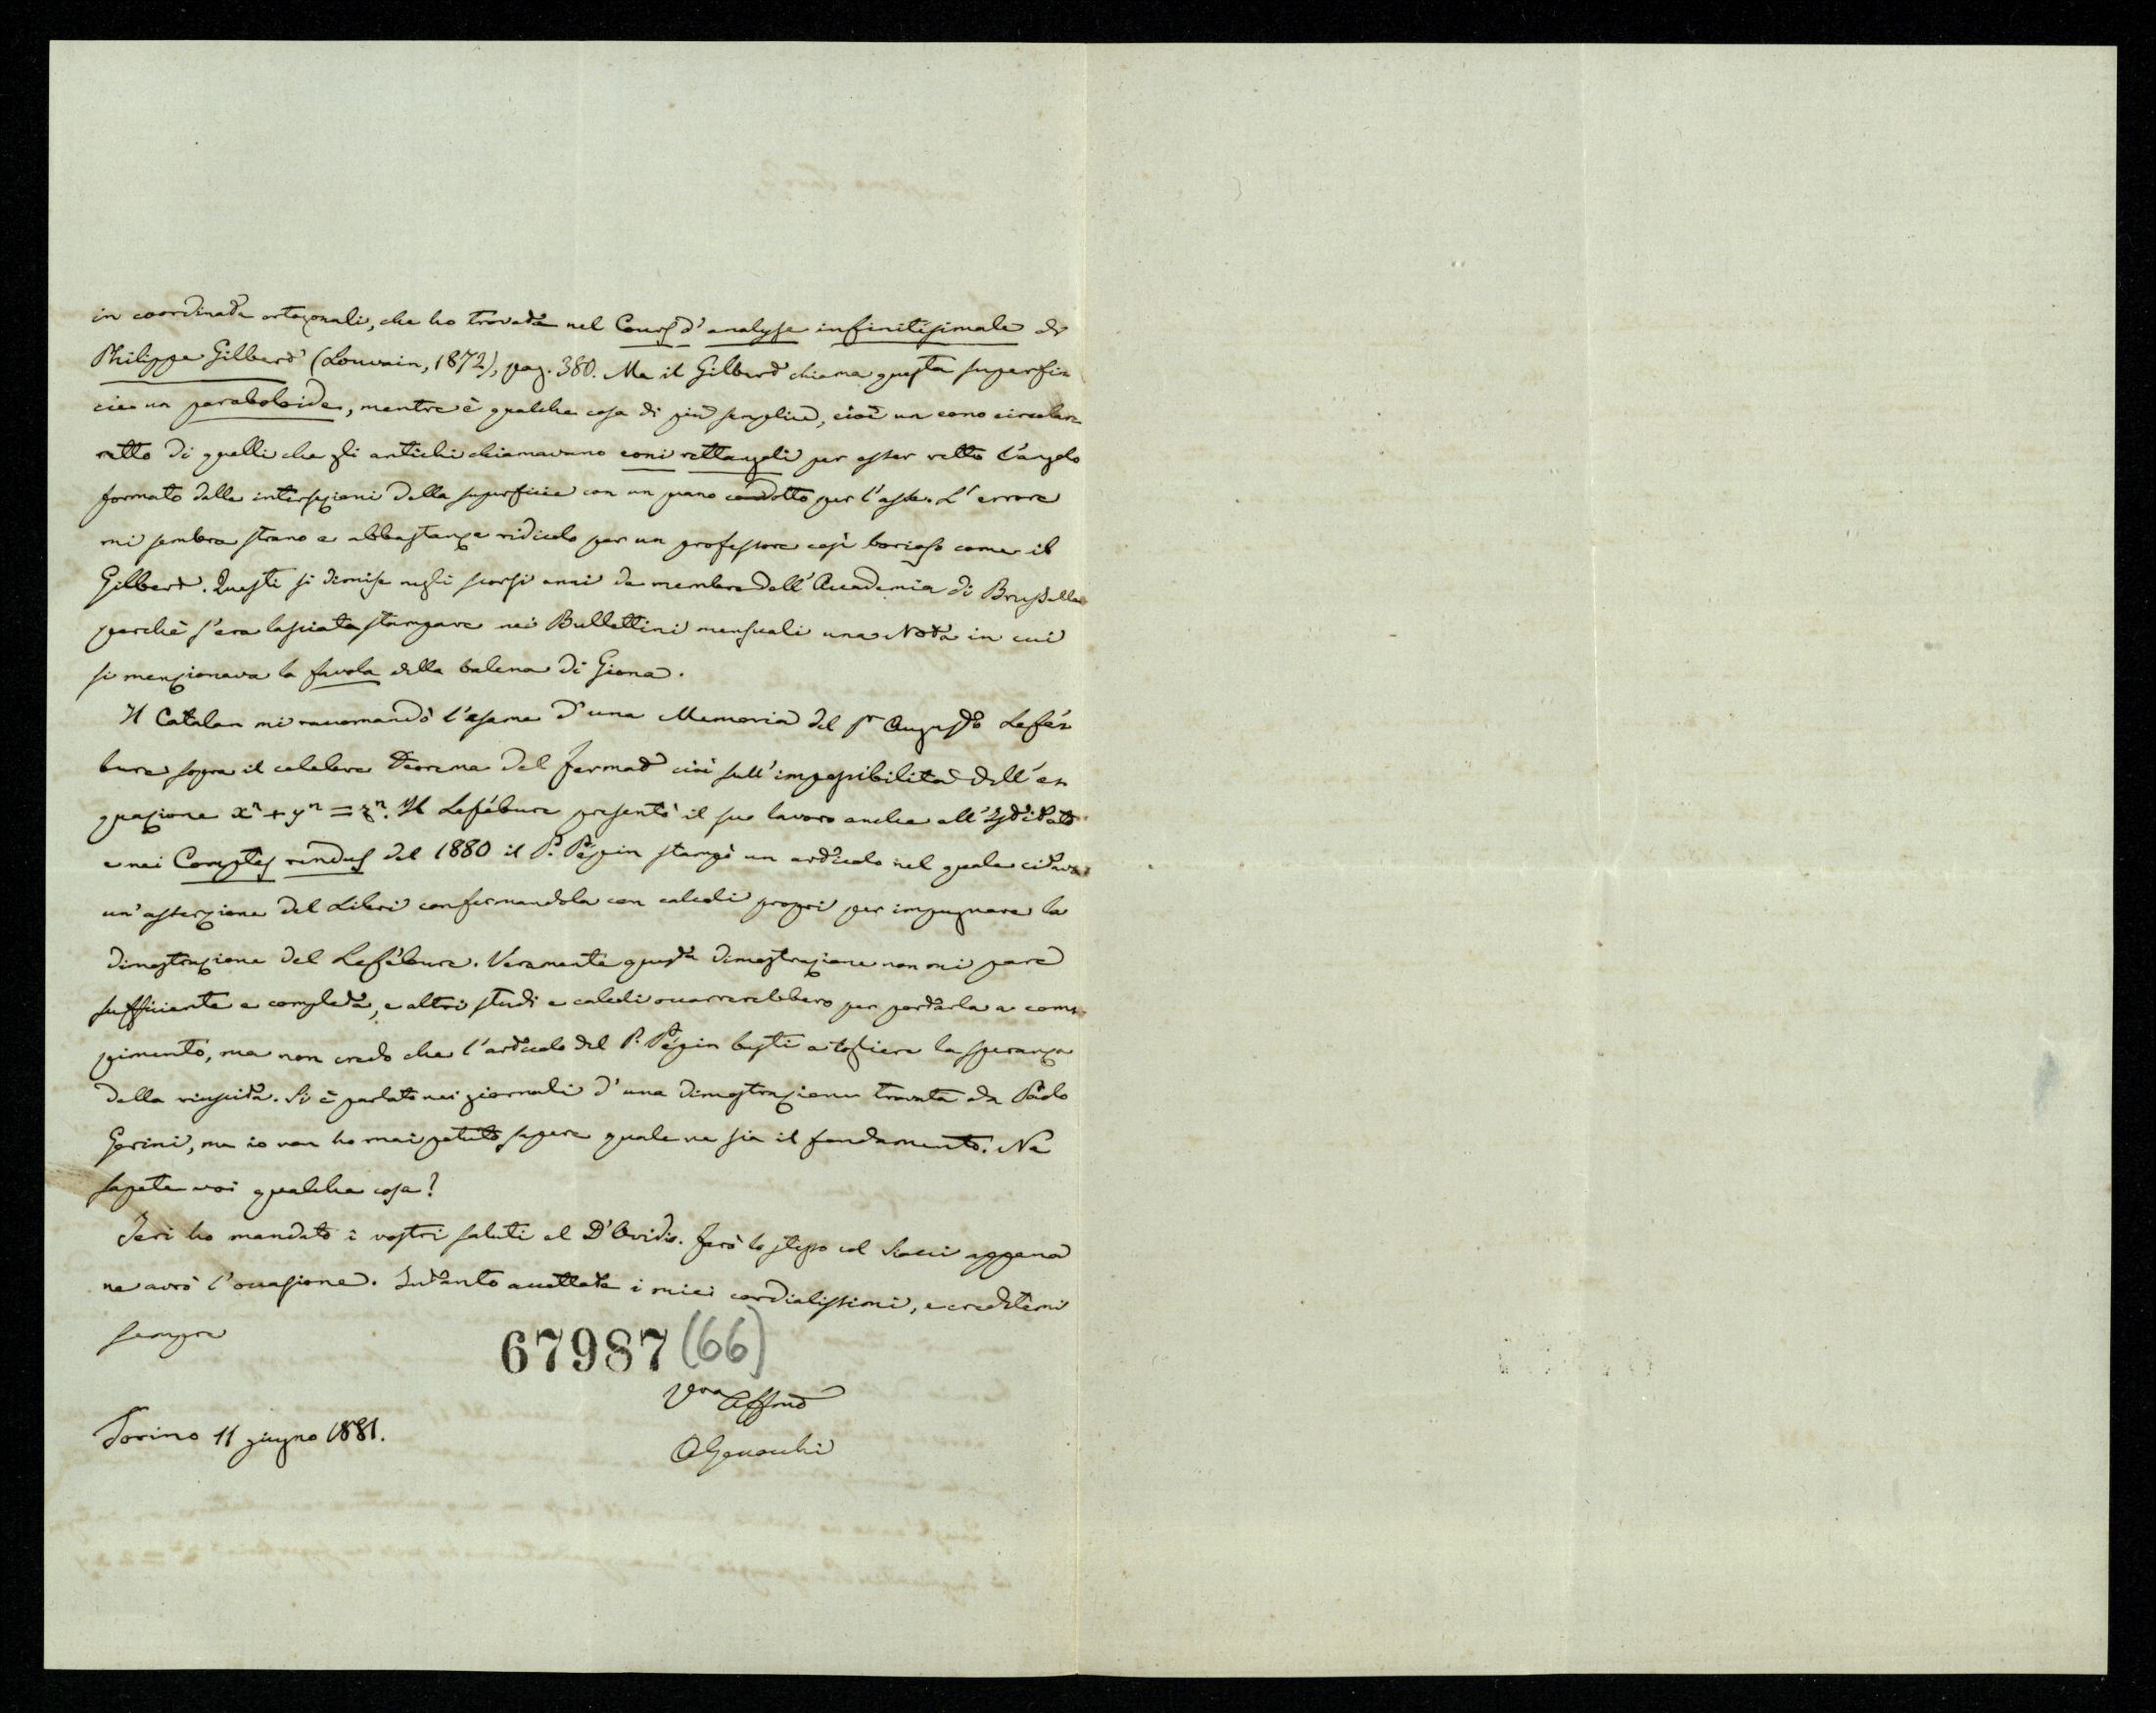 in coordinate ortogonali, che ho trovata nel Cours d'analyse infinitésimale di
Philippe Gilbert (Louvain, 1872), pag. 380. Ma il Gilbert chiama questa superfi=
cie un paraboloide, mentre è qualche cosa di più semplice, cioè un cono circolare
retto di quelli che gli antichi chiamavano coni rettangoli per esser retto l'angolo
formato dalle intersezioni della superficie con un piano condotto per l'asse. L'errore
mi sembra strano e abbastanza ridicolo per un professore così borioso come il
Gilbert. Questi si dimise negli scorsi anni da membro dell'Accademia di Brusselles
perchè s'era lasciata stampare nei Bullettini mensuali una Nota in cui
si menzionava la favola della balena di Giona.
Il Catalan mi raccomandò l'esame d'una Memoria del Sr Augusto Lefé=
bure sopra il celebre Teorema del Fermat cioè sull'impossibilità dell'e=
quazione xⁿ + yⁿ = zⁿ. Il Lefébure presentò il suo lavoro anche all'Istituto
e nei Comptes rendus del 1880 il P. Pépin stampò un articolo nel quale citava
un'asserzione del Libri confermandola con calcoli propri per impugnare la
dimostrazione del Lefébure. Veramente questa dimostrazione non mi pare
sufficiente e completa, e altri studi e calcoli occorrerebbero per portarla a com=
pimento, ma non credo che l'articolo del P. Pépin basti a togliere la speranza
della riuscita. Si è parlato nei giornali d'una dimostrazione trovata da Paolo
Gorini, ma io non ho mai potuto sapere quale ne sia il fondamento. Ne
sapete voi qualche cosa?
Ieri ho mandato i vostri saluti al D'Ovidio. Farò lo stesso col Siacci appena
ne avrò l'occasione. Intanto accettate i miei cordialissimi, e credetemi
sempre
67987 (66)
Affmo
Torino 11 giugno 1881.
A Genocchi